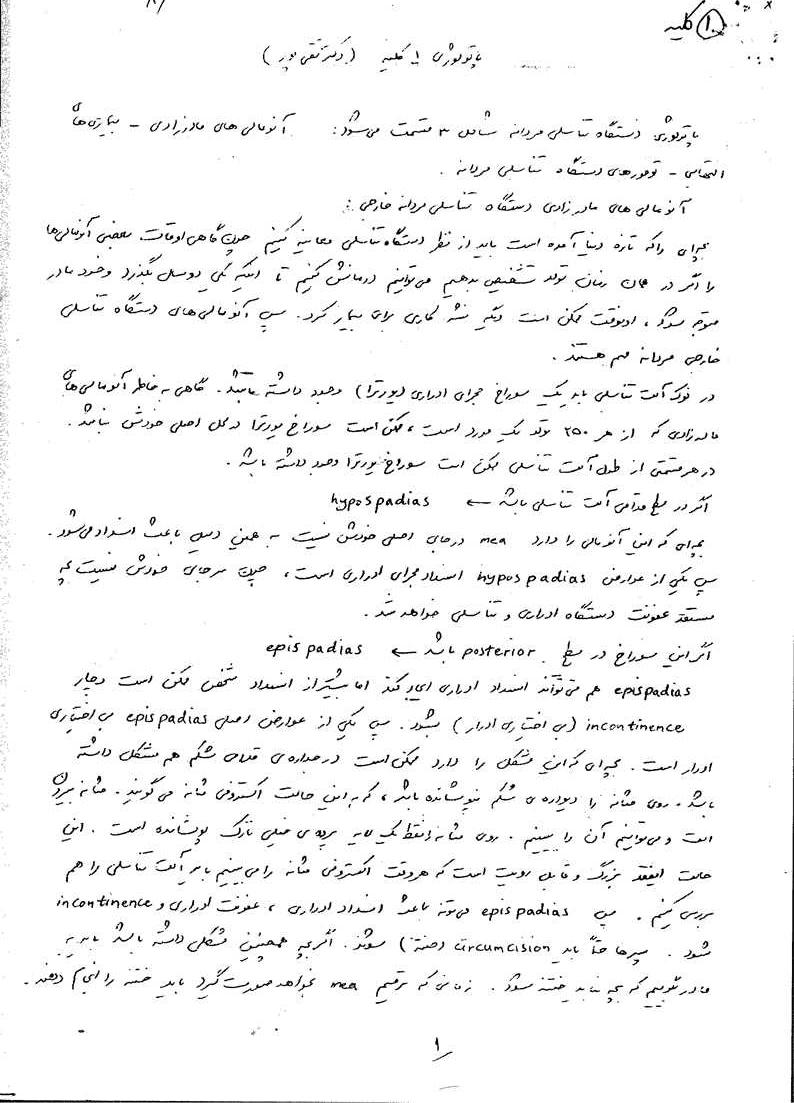 ۱۰ کلیه
پاتولوژی ۱۰ کلیه (دکتر تقی پور)
پاتولوژی دستگاه تناسلی مردانه شامل ۳ قسمت می‌شود: آنومالی های مادرزادی – بیماری های
التهابی – تومورهای دستگاه تناسلی مردانه .
آنومالی های مادرزادی دستگاه تناسلی مردانه خارجی :
بچه‌ای را که تازه دنیا آمده است باید از نظر دستگاه تناسلی معاینه کنیم چون گاهی اوقات بعضی آنومالی‌ها
را اگر در همان زمان تولد تشخیص بدهیم می‌توانیم درمانش کنیم تا اینکه یکی دو سال بگذرد و خود مادر
متوجه شود ، اونوقت ممکن است دیگه نشه کاری برای بیمار کرد. پس آنومالی‌های دستگاه تناسلی
خارجی مردانه مهم هستند .
در نوک آلت تناسلی باید یک سوراخ مجرای ادراری (یورترا) وجود داشته باشد. گاهی به خاطر آنومالی‌های
مادرزادی که از هر ۲۵۰ تولد یک مورد است ، ممکن است سوراخ یورترا در محل اصلی خودش نباشد .
در هر قسمتی از طول آلت تناسلی ممکن است سوراخ یورترا وجود داشته باشد .
اگر در سطح قدامی آلت تناسلی باشد ← hypospadias
بچه‌ای که این آنومالی را دارد mea در جای اصلی خودش نیست به همین دلیل باعث انسداد می‌شود .
پس یکی از عوارض hypospadias انسداد مجرای ادراری است ، چون سر جای خودش نیست بچه
مستعد عفونت دستگاه ادراری و تناسلی خواهد شد .
اگر این سوراخ در سطح posterior باشد ← epispadias
epispadias هم می‌تواند انسداد ادراری ایجاد کند اما بیشتر از انسداد شخص ممکن است دچار
incontinence (بی اختیاری ادرار) بشود . پس یکی از عوارض اصلی epispadias بی اختیاری
ادرار است . بچه‌ای که این مشکل را دارد ممکن است در جداره‌ی قدامی شکم هم مشکل داشته
باشد . روی مثانه را دیواره‌ی شکم نپوشانده باشد ، که به این حالت اکستروفی مثانه می‌گویند . مثانه بیرون
است و می‌توانیم آن را ببینیم . روی مثانه فقط یک لایه پرده‌ی خیلی نازک پوشانده است . این
حالت اینقدر بزرگ و قابل رویت است که هر وقت اکستروفی مثانه را می‌بینیم باید آلت تناسلی را هم
بررسی کنیم . پس epispadias می‌تونه باعث انسداد ادراری ، عفونت ادراری و incontinence
شود . پسرها حتماً باید circumcision (ختنه) شوند . اگر بچه همچنین مشکلی داشته باشد باید به
مادر بگوییم که بچه نباید ختنه شود . زمانی که ترمیم mea بخواهد صورت گیرد باید ختنه را انجام دهند .
۱